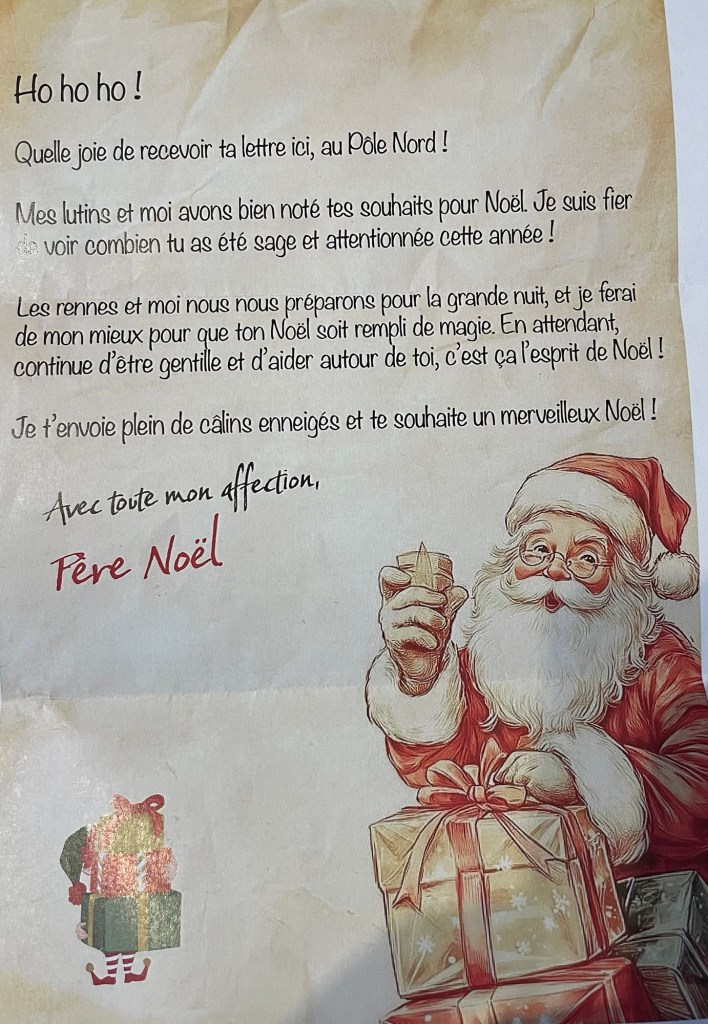 Ho ho ho !
Quelle joie de recevoir ta lettre ici, au Pôle Nord !
Mes lutins et moi avons bien noté tes souhaits pour Noël. Je suis fier
de voir combien tu as été sage et attentionnée cette année !
Les rennes et moi nous nous préparons pour la grande nuit, et je ferai
de mon mieux pour que ton Noël soit rempli de magie. En attendant,
continue d'être gentille et d'aider autour de toi, c'est ça l'esprit de Noël !
Je t'envoie plein de câlins enneigés et te souhaite un merveilleux Noël !
Avec toute mon affection,
Père Noël